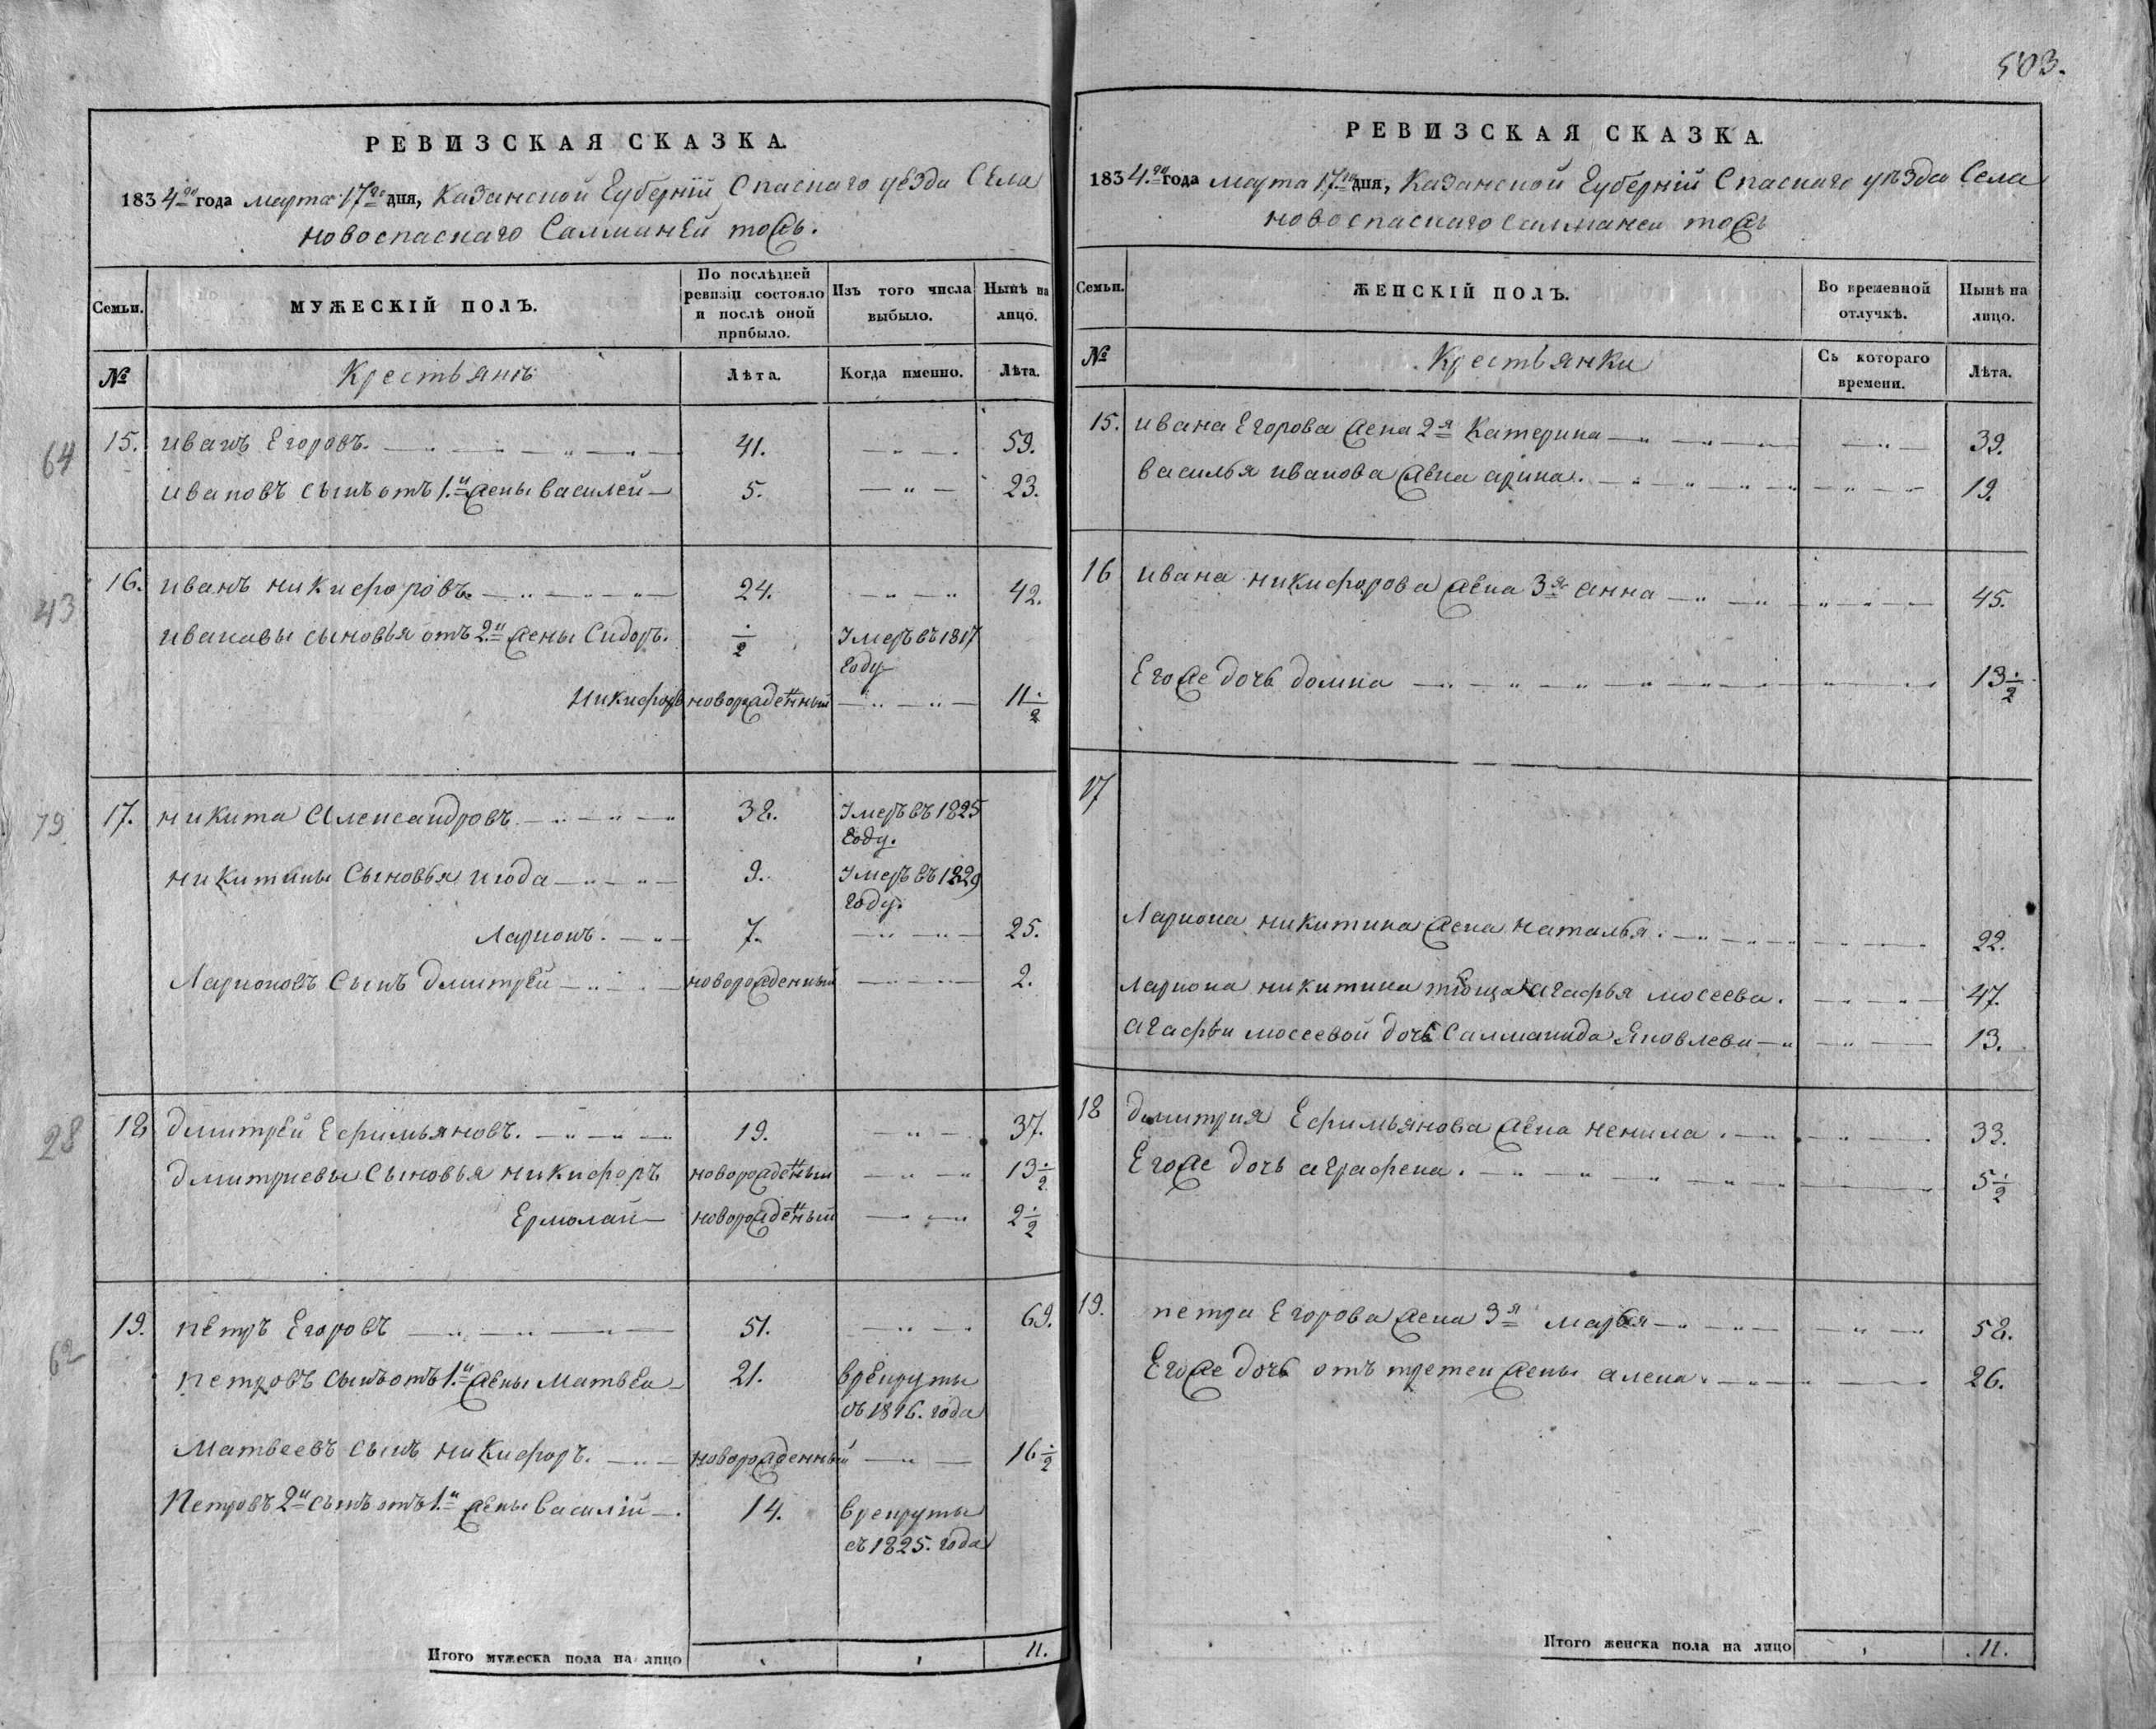 РЕВИЗСКАЯ СКАЗКА.
1834го года марта 17го дня, Казанской Губерній Спаскаго уезда Села
новоспаскаго Салманъ тожъ.
Семьи. МУЖЕСКІЙ ПОЛЪ. По послѣдней ревизіи состояло и послѣ оной прибыло. Изъ того числа выбыло. Нынѣ на лицо.
№ Крестьянъ Лѣта. Когда именно. Лѣта.
64 15. иванъ Егоровъ. 41. 59.
ивановъ сынъ отъ 1.й жены василей 5. 23.
43 16. иванъ никифоровъ. 24. 42.
ивановы сыновья отъ 2й жены Сидоръ. ½ Умеръ въ 1817
году
Никифоръ новорожденный 11½
79 17. никита Александровъ 32. Умеръ въ 1825
году.
никитины Сыновья июда 9. Умеръ въ 1829
году.
Ларионъ. 7. 25.
Ларионовъ Сынъ дмитрей новорожденный 2.
28 18 дмитрей Ефимьяновъ. 19. 37.
дмитриевы Сыновья никифоръ новорожденный 13½
Ермолай новорожденный 2½
62 19. петръ Егоровъ 51. 69.
петровъ сынъ отъ 1.й жены Матвеи 21. врекруты
съ 1816. года
Матвеевъ сынъ никифоръ. новорожденный 16½
Петровъ 2й сынъ отъ 1.й жены василій 14. врекруты
съ 1825. года
Итого мужеска пола на лицо 11.
503.
РЕВИЗСКАЯ СКАЗКА.
1834.го года марта 17го дня, Казанской Губерній Спаскаго уѣзда Села
новоспаскаго Салманъ тожъ
Семьи. ЖЕНСКІЙ ПОЛЪ. Во временной отлучкѣ. Нынѣ на лицо.
№ Крестьянки Съ котораго времени. Лѣта.
15. ивана Егорова жена 2я Катерина 39.
василья иванова жена арина. 19.
16 ивана никифорова жена 3я анна 45.
Егоже дочь домна 13½
17
Лариона никитина жена наталья. 22.
Лариона никитина тюща агафья мосеева. 47.
агафьи мосеевой дочь Салманида Яковлева 13.
18 дмитрия Ефимьянова жена ненила. 33.
Егоже дочь аграфена. 5½
19. петра Егорова жена 3я марья 52.
Егоже дочь отъ третей жены алена. 26.
Итого женска пола на лицо 11.